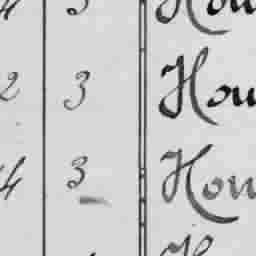 4 3 Hou
2 3 Hou
4 3 Hou